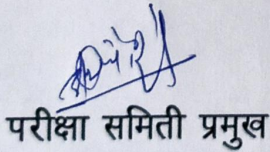 परीक्षा समिती प्रमुख